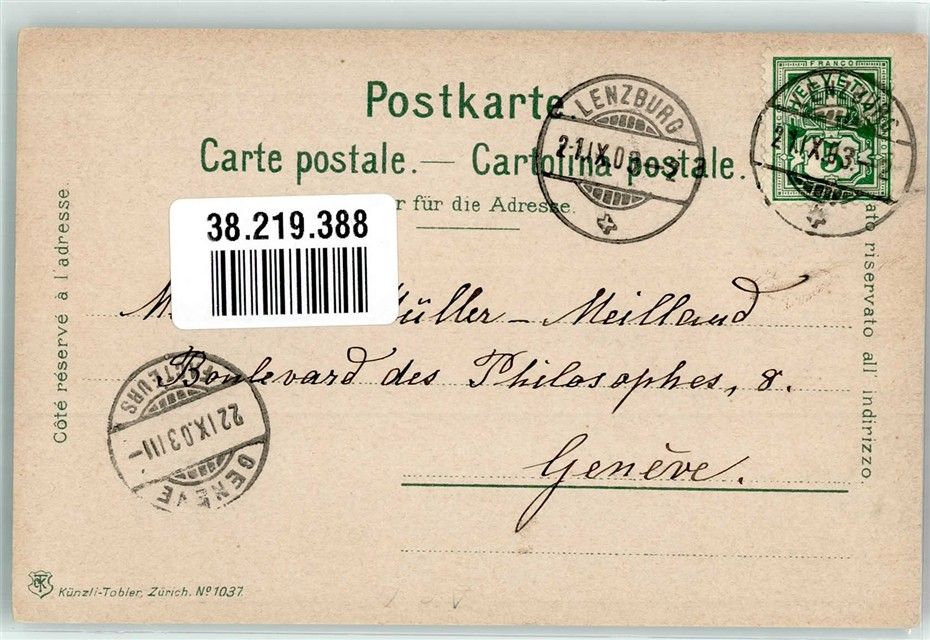 Postkarte.
Carte postale. — Cartolina postale.
für die Adresse.
38.219.388
FRANCO
HELVETIA
5
LENZBURG
21.IX.03.
LENZBURG
21.IX.03.
Côté réservé à l'adresse.
riservato all' indirizzo.
Müller – Meilland
Boulevard des Philosophes, 8.
Genève.
GENÈVE
22.IX.03.III–
FACTEURS
Künzli-Tobler, Zürich. No 1037.